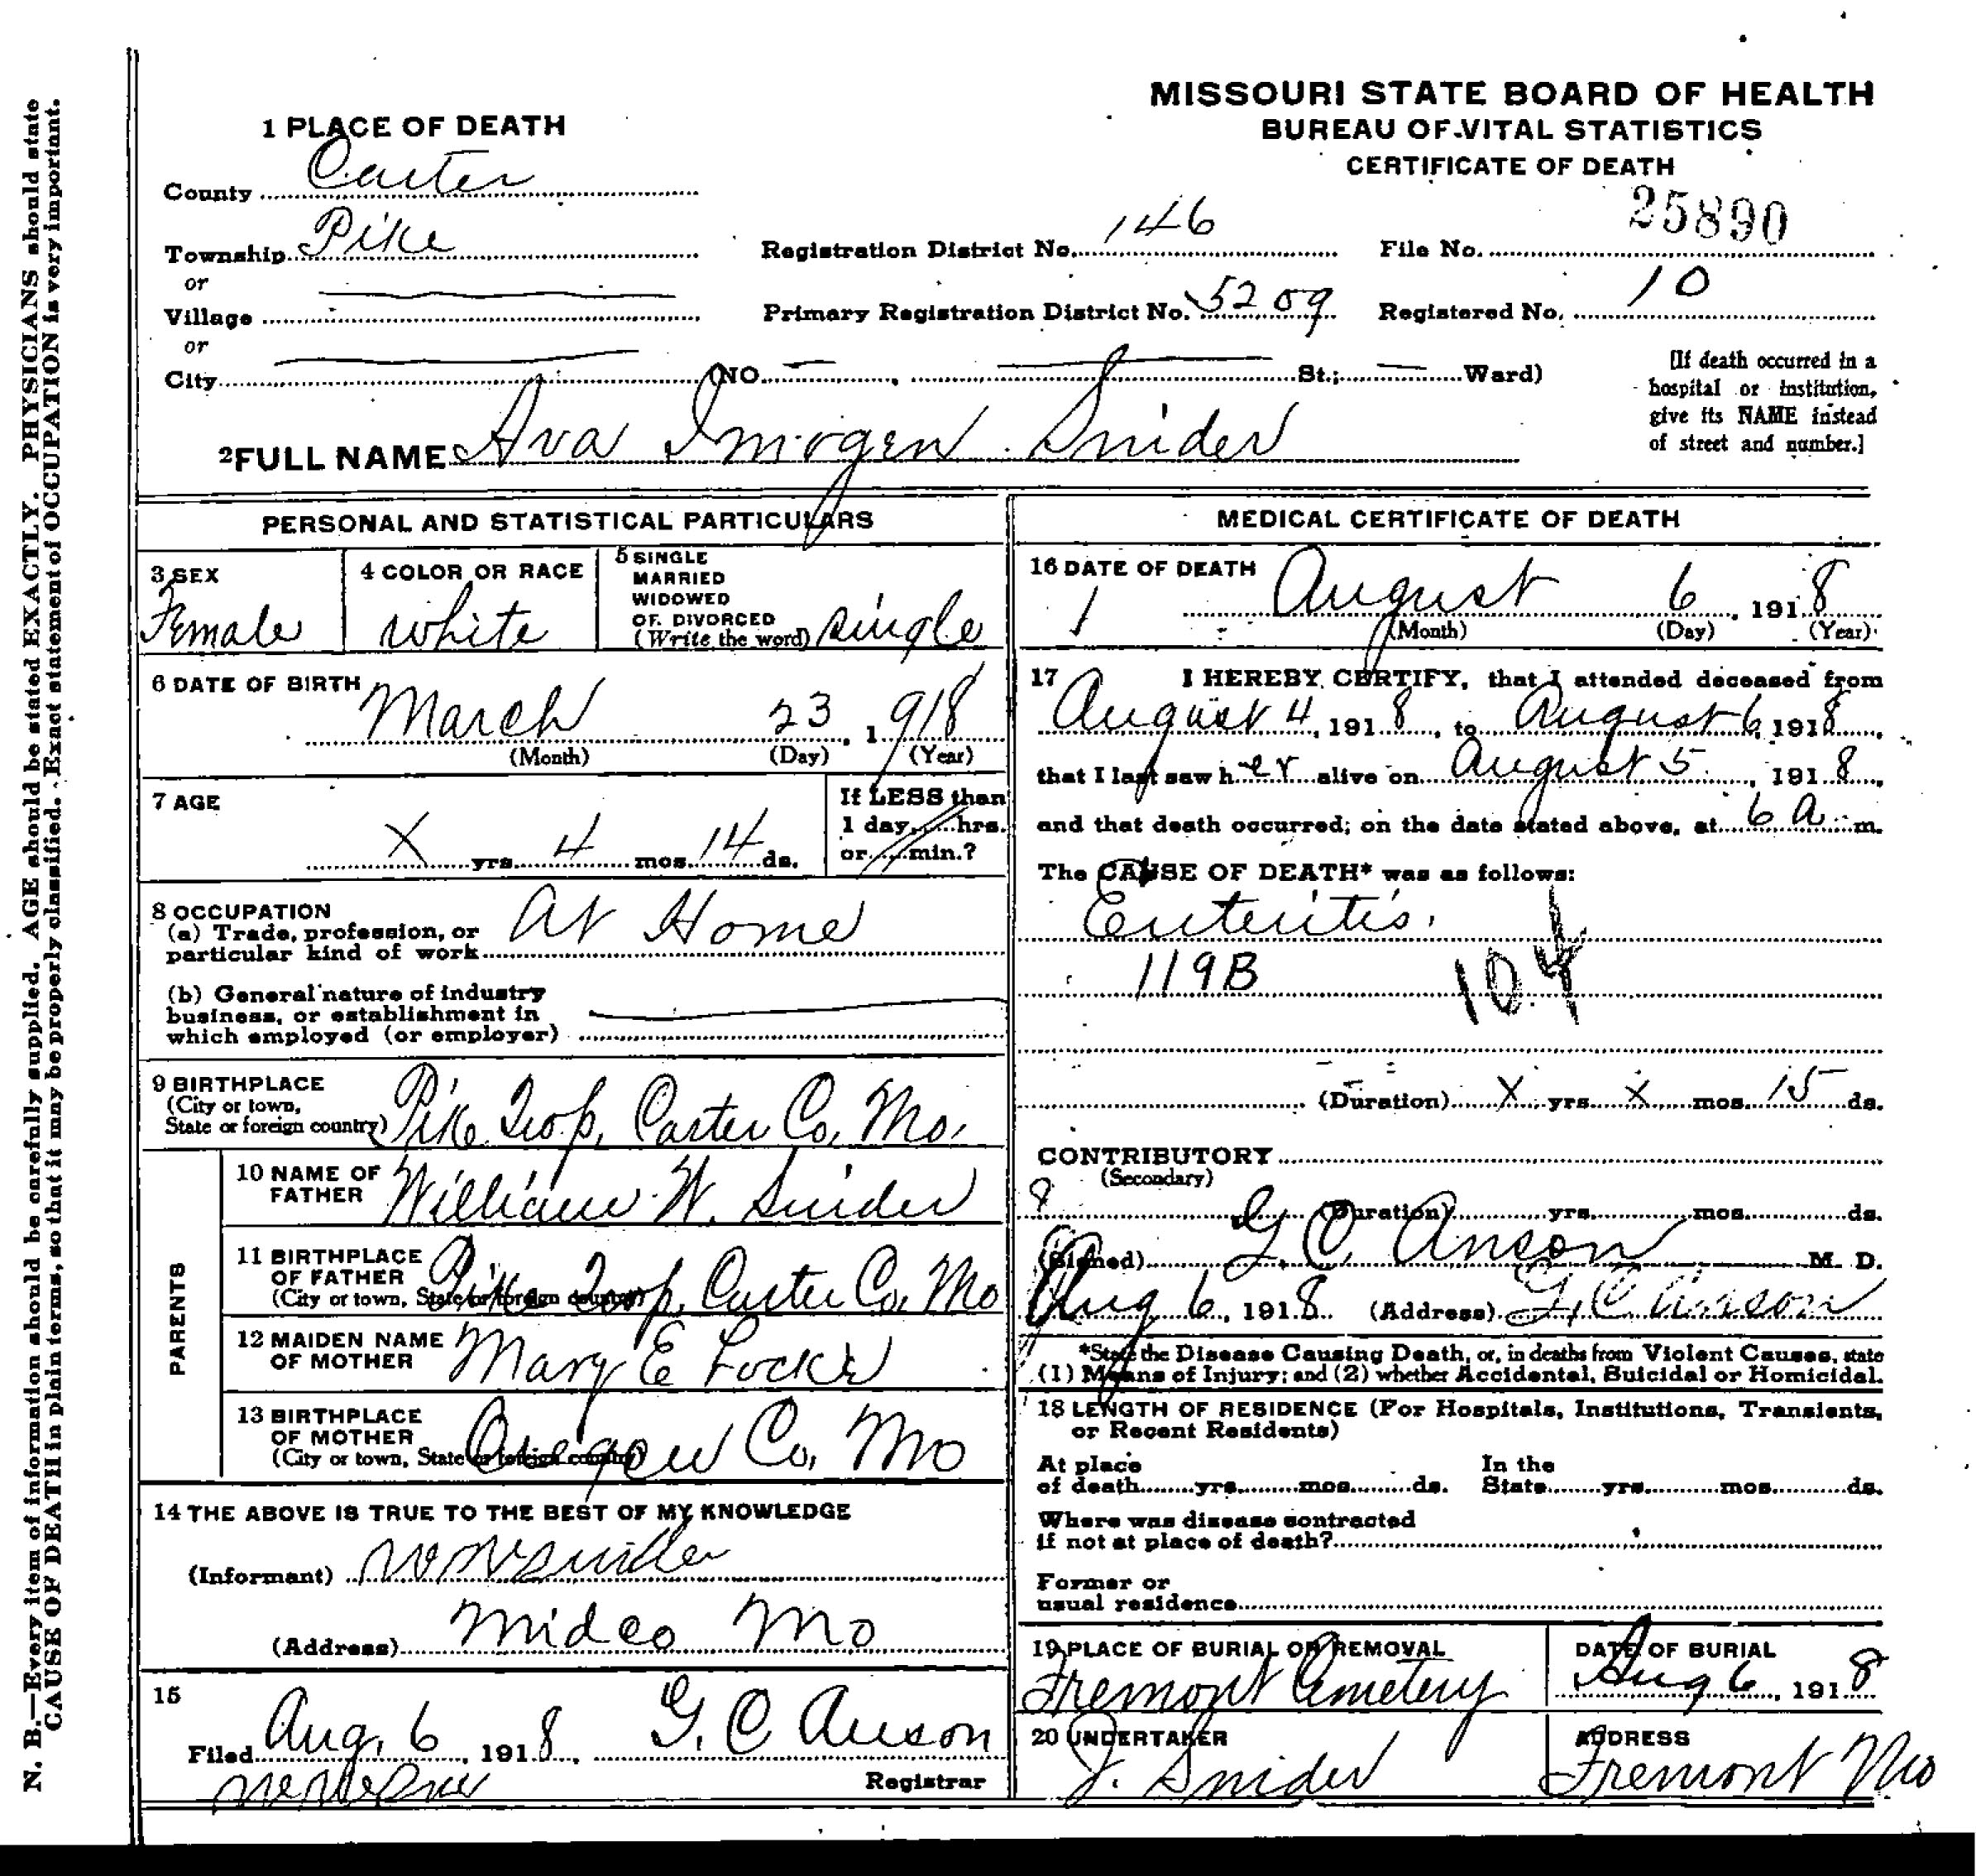 MISSOURI STATE BOARD OF HEALTH
BUREAU OF VITAL STATISTICS
CERTIFICATE OF DEATH
1 PLACE OF DEATH
County Carter
Township Pike
or
Village
or
City (NO. , St.; Ward)
Registration District No. 146
File No. 25890
Primary Registration District No. 5209
Registered No. 10
[If death occurred in a
hospital or institution,
give its NAME instead
of street and number.]
2 FULL NAME Ava Imogen Snider
PERSONAL AND STATISTICAL PARTICULARS
3 SEX
Female
4 COLOR OR RACE
white
5 SINGLE
MARRIED
WIDOWED
OR DIVORCED
(Write the word) single
6 DATE OF BIRTH
March 23, 1918
(Month) (Day) (Year)
7 AGE
X yrs. 4 mos. 14 ds.
If LESS than
1 day, hrs.
or min.?
8 OCCUPATION
(a) Trade, profession, or
particular kind of work At Home
(b) General nature of industry
business, or establishment in
which employed (or employer)
9 BIRTHPLACE
(City or town,
State or foreign country) Pike Twp, Carter Co, Mo.
PARENTS
10 NAME OF
FATHER William W. Snider
11 BIRTHPLACE
OF FATHER
(City or town, State or foreign country) Pike Twp, Carter Co, Mo
12 MAIDEN NAME
OF MOTHER Mary E Locke
13 BIRTHPLACE
OF MOTHER
(City or town, State or foreign country) Oregon Co, Mo
14 THE ABOVE IS TRUE TO THE BEST OF MY KNOWLEDGE
(Informant) W W Snider
(Address) Midco Mo
15
Filed Aug, 6, 1918, G. C Anson
Registrar
MEDICAL CERTIFICATE OF DEATH
16 DATE OF DEATH
1 August 6, 1918
(Month) (Day) (Year)
17 I HEREBY CERTIFY, that I attended deceased from
August 4, 1918, to August 6, 1918,
that I last saw her alive on August 5, 1918,
and that death occurred, on the date stated above, at 6 a m.
The CAUSE OF DEATH* was as follows:
Enteritis.
119B 104
(Duration) X yrs. X mos. 15 ds.
CONTRIBUTORY
(Secondary)
8 (Duration) yrs. mos. ds.
(Signed) G. C Anson M. D.
Aug 6, 1918 (Address) G. C Anson
*State the Disease Causing Death, or, in deaths from Violent Causes, state
(1) Means of Injury; and (2) whether Accidental, Suicidal or Homicidal.
18 LENGTH OF RESIDENCE (For Hospitals, Institutions, Transients,
or Recent Residents)
At place
of death yrs. mos. ds.
In the
State yrs. mos. ds.
Where was disease contracted
if not at place of death?
Former or
usual residence
19 PLACE OF BURIAL OR REMOVAL
Fremont Cemetery
DATE OF BURIAL
Aug 6, 1918
20 UNDERTAKER
J. Snider
ADDRESS
Fremont Mo
N. B.—Every item of information should be carefully supplied. AGE should be stated EXACTLY. PHYSICIANS should state
CAUSE OF DEATH in plain terms, so that it may be properly classified. Exact statement of OCCUPATION is very important.